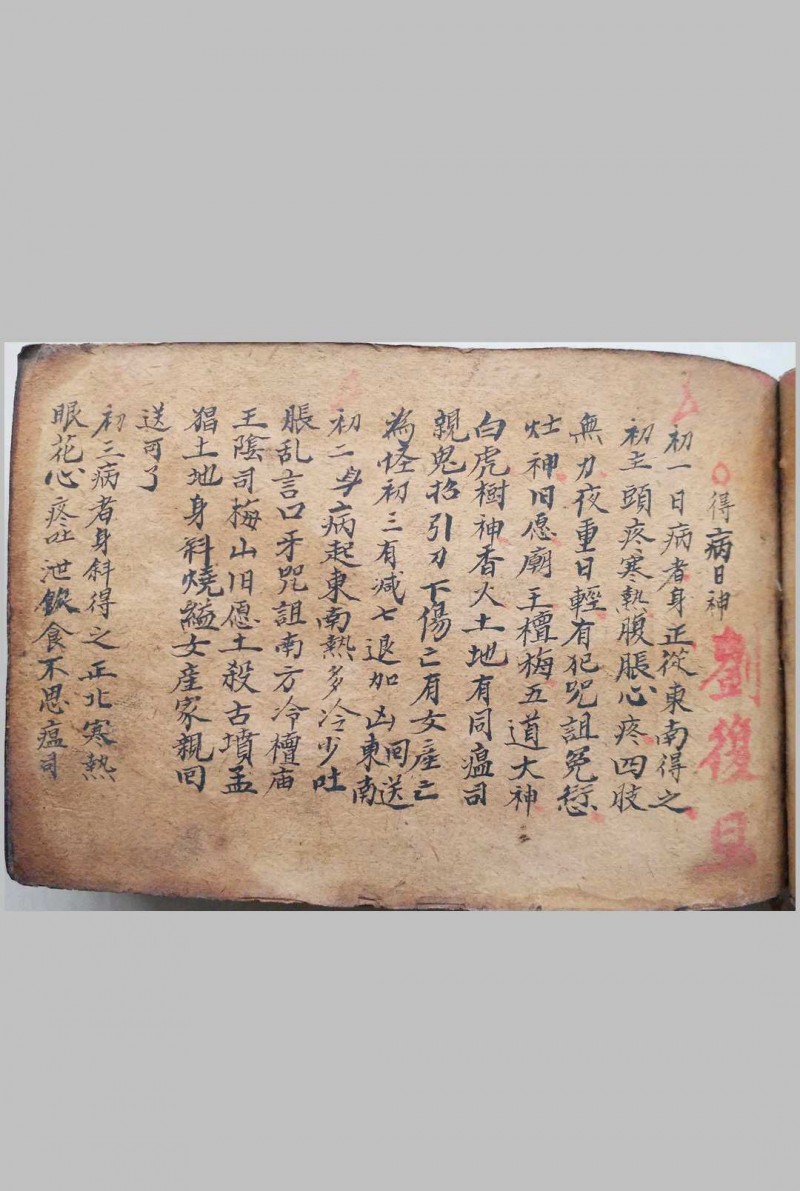 得病日神
劉復旦
初一日病者身正從東南得之
初主頭疼寒熱腹脹心疼四肢
無力夜重日輕有犯咒詛冤愆
灶神旧愿廟王檀梅五道大神
白虎樹神香火土地有同瘟司
親鬼招引刀下傷亡有女產亡
為怪初三有减七退加凶東南回送
初二身病起東南熱多冷少吐
脹乱言口牙咒詛南方冷檀庙
王陰司梅山旧愿土殺古墳孟
猖土地身斜燒縊女産家親回
送可了
初三病者身斜得之正北寒熱
眼花心疼吐泄飲食不思瘟司